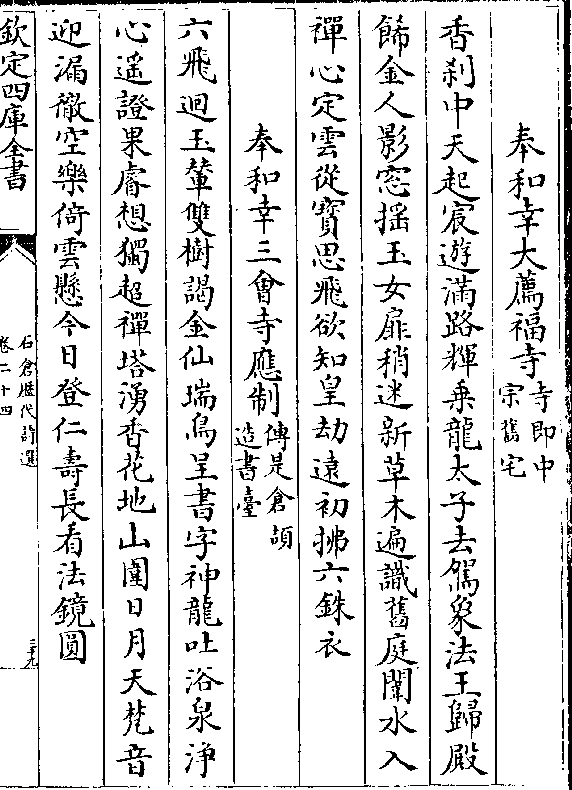 奉和幸大薦福寺寺即中宗舊宅
香刹中天起宸遊滿路輝乗龍太子去駕象法王歸殿
餙金人影窓揺玉女扉稍迷新草木遍識舊庭闈水入
禪心定雲從寳思飛欲知皇劫遠初拂六銖衣
奉和幸三會寺應制傳是倉頡造書臺
六飛迴玉輦雙樹謁金仙瑞鳥呈書字神龍吐浴泉浄
心遥證果睿想獨超禪塔湧香花地山圍日月天梵音
迎漏徹空樂倚雲懸今日登仁壽長看法鏡圓
欽定四庫全書
石倉歴代詩選
卷二十四
三十九